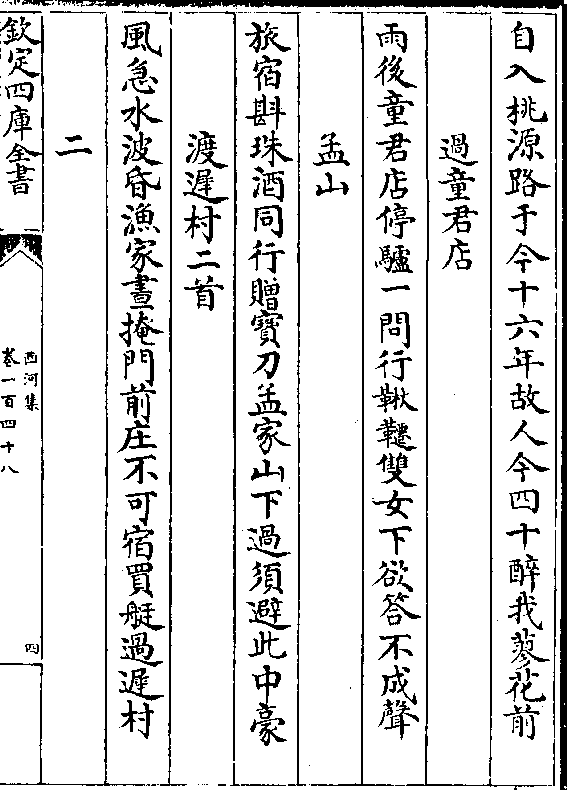 自入桃源路于今十六年故人今四十醉我蓼花前
過童君店
雨後童君店停驢一問行鞦韆雙女下欲答不成聲
孟山
旅宿斟珠酒同行贈寶刀孟家山下過須避此中豪
渡遲村二首
風急水波昏漁家晝掩門前庄不可宿買艇過遲村
二
欽定四庫全書
西河集
卷一百四十八
四